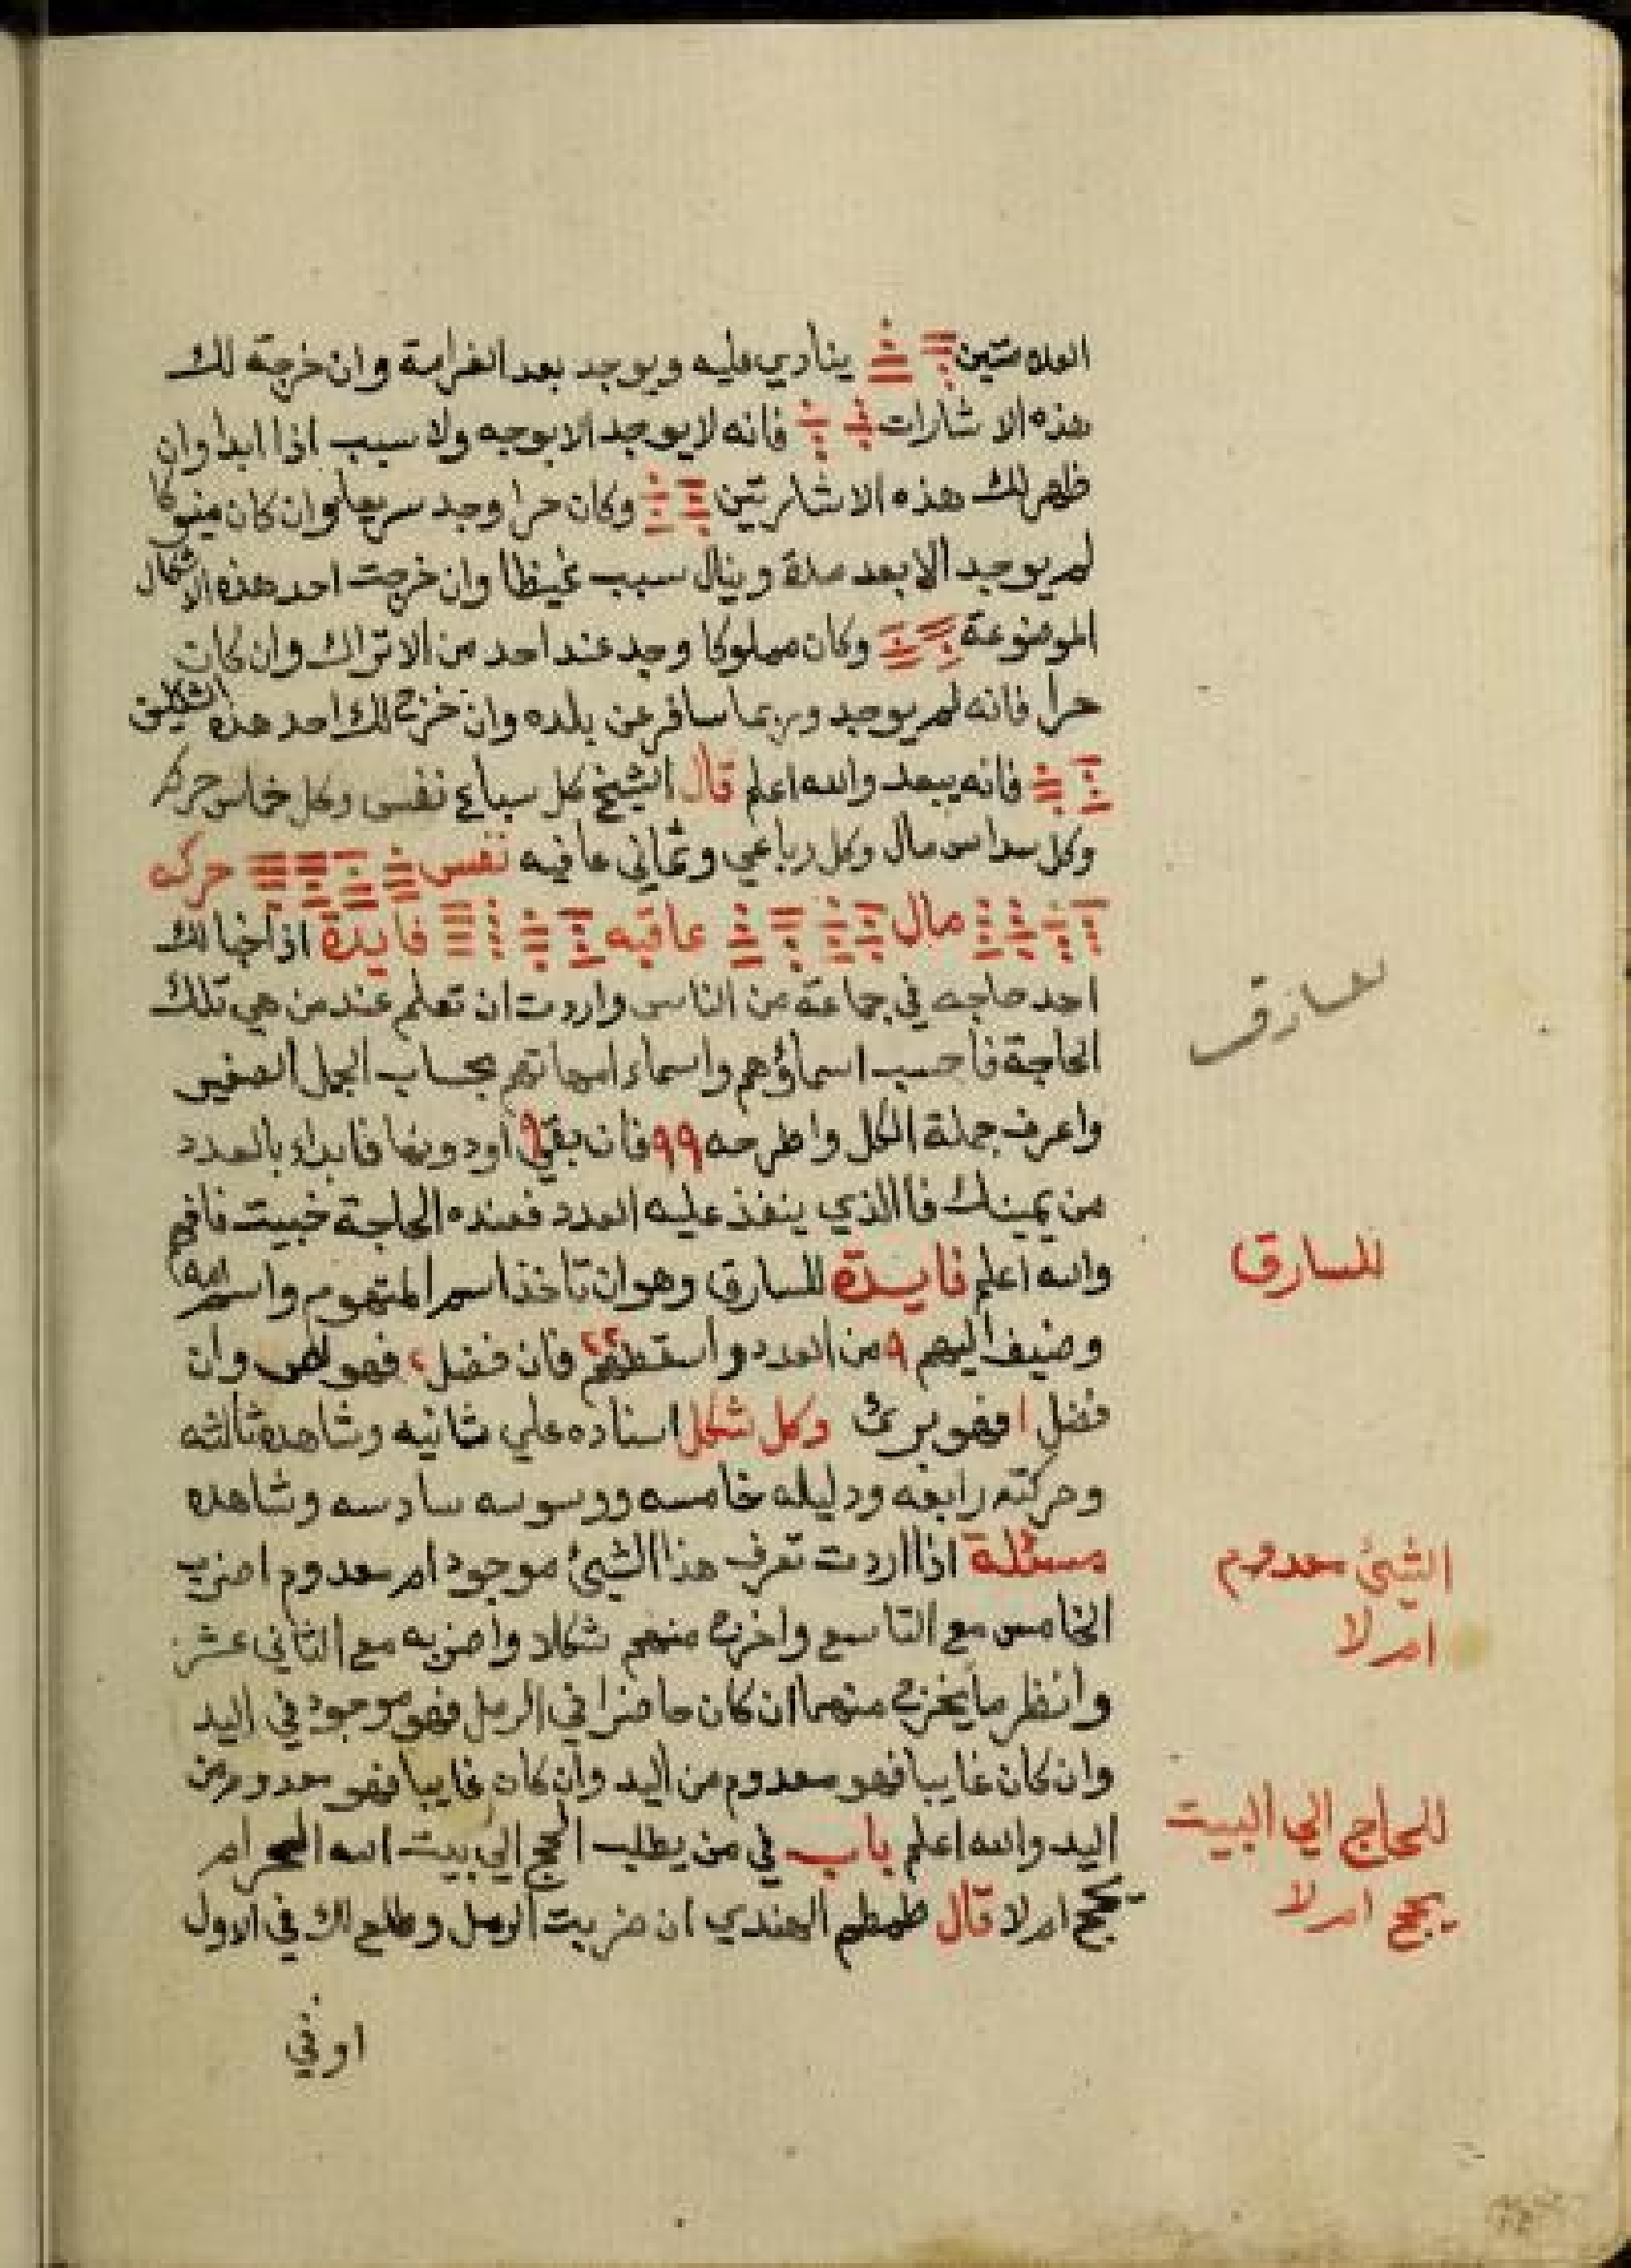 ينادي عليه ويوجد بعد الغرامة وان خرجة لك
هذه الاشارات فانه لا يوجد الا بوجه ولا سبب اذا ابدا وان
ظهر لك هذه الاشارتين وكان حرا وجد سريعا وان كان
لم يوجد الا بعد مدة وينال سبب غيظا وان خرجت احد هذه الاشكال
الموضوعة وكان مملوكا وجد عند احد من الاتراك وان كان
حرا فانه لم يوجد وربما سافر عن بلده وان خرج لك احد هذه الشكلين
فانه يبعد والله اعلم قال الشيخ كل سباعي نفس وكل خماسي حركه
وكل سداسي مال وكل رباعي وثماني عافيه نفس حركه
مال عافيه فايدة اذا خبا لك
احد حاجه في جماعة من الناس واردت ان تعلم عند من هي تلك
الحاجة فاحسب اسماؤهم واسماء امهاتهم بحساب الجمل الصغير
واعرف جملة الكل واطرحه ٩٩ فان بقي ٩ او دونها فابداء بالعدد
من يمينك فاالذي ينفذ عليه العدد فعنده الحاجة خبيت فافهم
والله اعلم فايدة للسارق وهو ان تاخذ اسم المتهوم واسم امه
وضيف اليهم ٩ من العدد واسقطهم فان فضل ٢ فهو لص وان
فضل ١ فهو برئ وكل شكل اسناده علي ثانيه وشاهده ثالثه
وحركته رابعه ودليله خامسه ووسوسه سادسه وشاهده
مسئلة اذا اردت تعرف هذا الشئ موجود ام معدوم اضرب
الخامس مع التاسع واخرج منهم شكلا واضربه مع الثاني عشر
وانظر ما يخرج منهما ان كان حاضرا في الرمل فهو موجود في اليد
وان كان غايبا فهو معدوم من اليد وان كان غايبا فهو معدوم من
اليد والله اعلم باب في من يطلب الحج الي بيت الله الحرام
يحج ام لا قال طمطم الهندي ان ضربت الرمل وطلع لك في الاول
للسارق
الشئ معدوم
ام لا
للحاج الي البيت
يحج ام لا